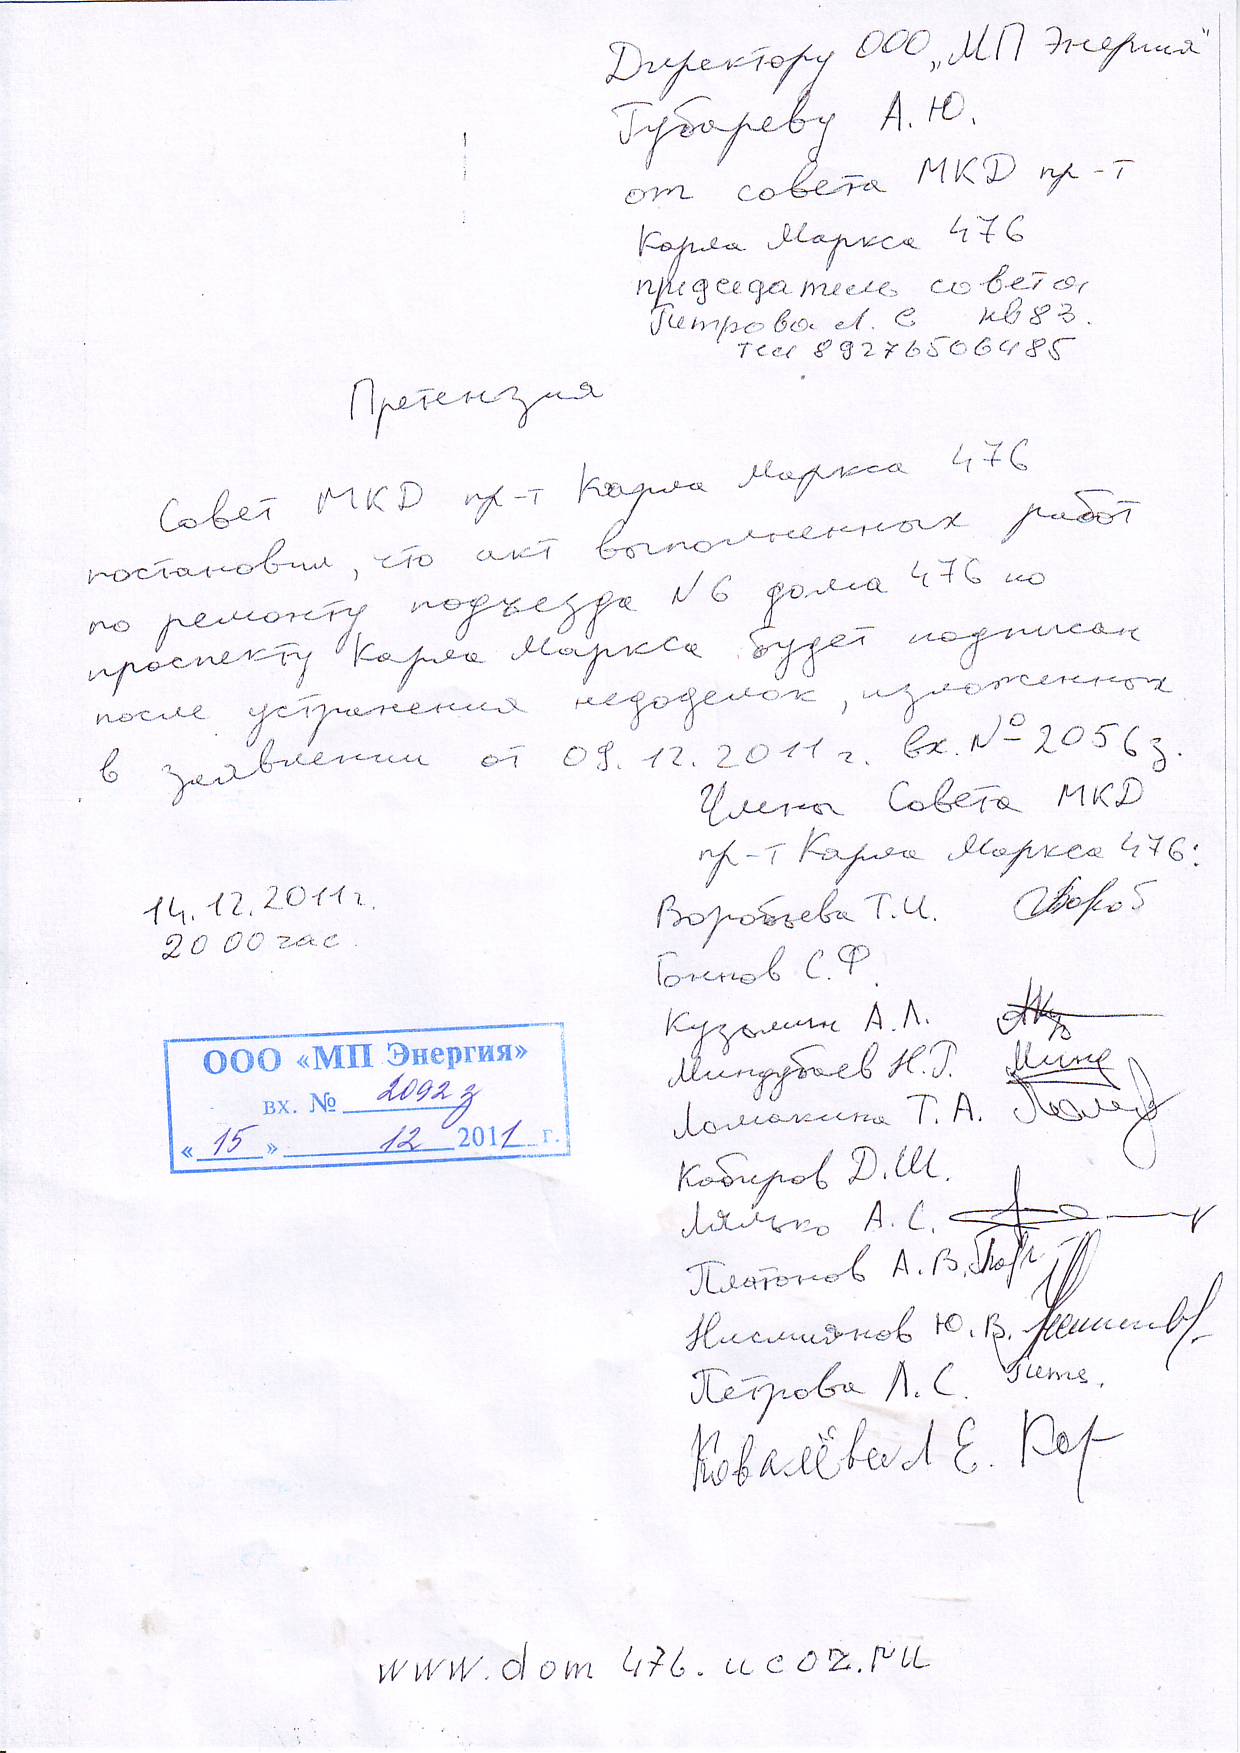 Директору ООО „МП Энергия"
Губареву А.Ю.
от совета МКД пр-т
Карла Маркса 476
председатель совета
Петрова Л. С кв 83.
тел 89276506485
Претензия
Совет МКД пр-т Карла Маркса 476
постановил, что акт выполненных работ
по ремонту подъезда №6 дома 476 по
проспекту Карла Маркса будет подписан
после устранения недоделок, изложенных
в заявлении от 09.12.2011г. вх. № 2056з.
Члены Совета МКД
пр-т Карла Маркса 476:
14.12.2011г.
20 00 час.
Воробьева Т.И. Вороб
С.Ф.
Кузьмин А.Л.
Миндубаев Н.Г. Минд
Ломакина Т.А.
Кабиров Д.Ш.
Лялько А.С.
Платонов А.В.
Ю.В.
Петрова Л.С. Петв.
Ковалёва Л Е.
ООО «МП Энергия»
вх. № 2092 з
« 15 » 12 2011 г.
www.dom476.ucoz.ru